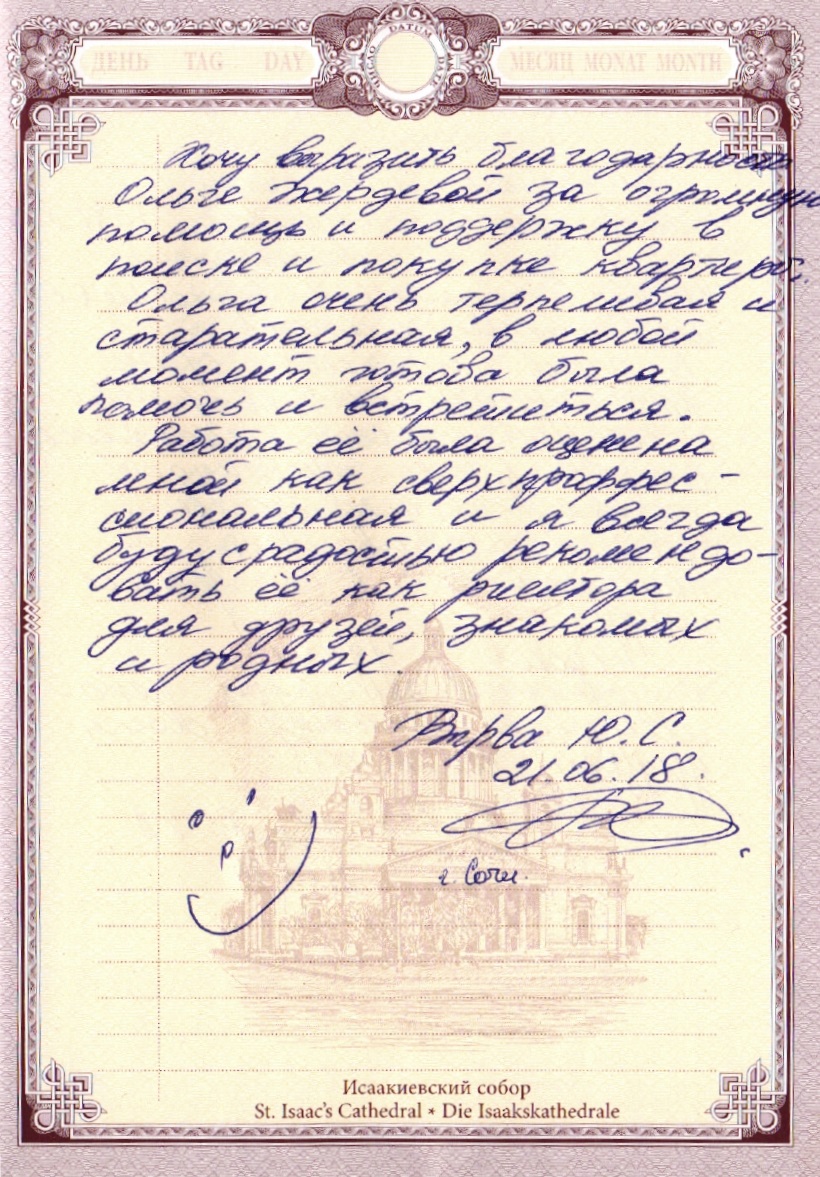 ДЕНЬ TAG DAY DATUM МЕСЯЦ MONAT MONTH
Хочу выразить благодарность
Ольге Жердевой за огромную
помощь и поддержку в
поиске и покупке квартиры.
Ольга очень терпеливая и
старательная, в любой
момент готова была
помочь и встретиться.
Работа её была оценена
мной как сверхпроффес-
сиональная и я всегда
буду с радостью рекомендо-
вать её как риелтора
для друзей, знакомых
и родных.
Ю. С.
21.06.18.
г. Сочи.
Исаакиевский собор
St. Isaac's Cathedral * Die Isaakskathedrale